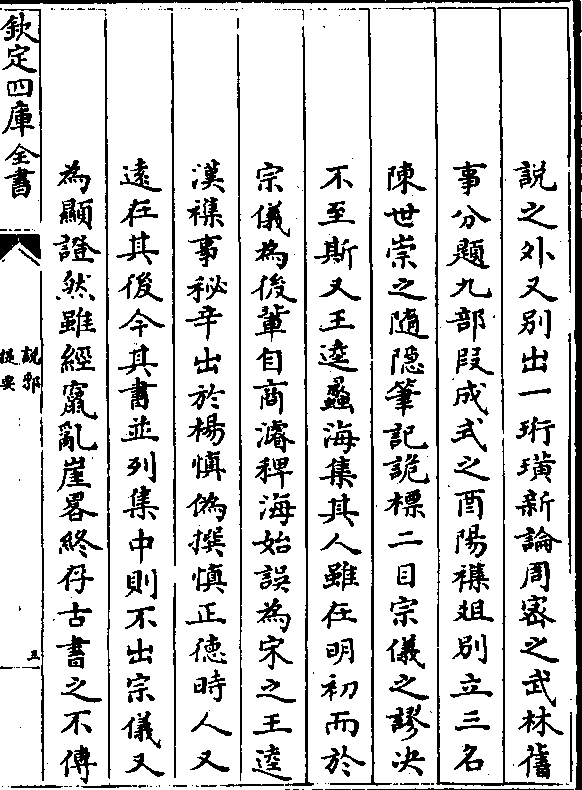 說之外又別出一珩璜新論周宻之武林舊
事分題九部段成式之酉陽襍俎別立三名
陳世崇之隨隱筆記詭標二目宗儀之謬決
不至斯又王逵蠡海集其人雖在明初而於
宗儀為後輩自商濬稗海始誤為宋之王逵
漢襍事秘辛出於楊慎偽撰慎正德時人又
遠在其後今其書並列集中則不出宗儀又
為顯證然雖經竄亂崖畧終存古書之不傳
欽定四庫全書
說郛
提要
五